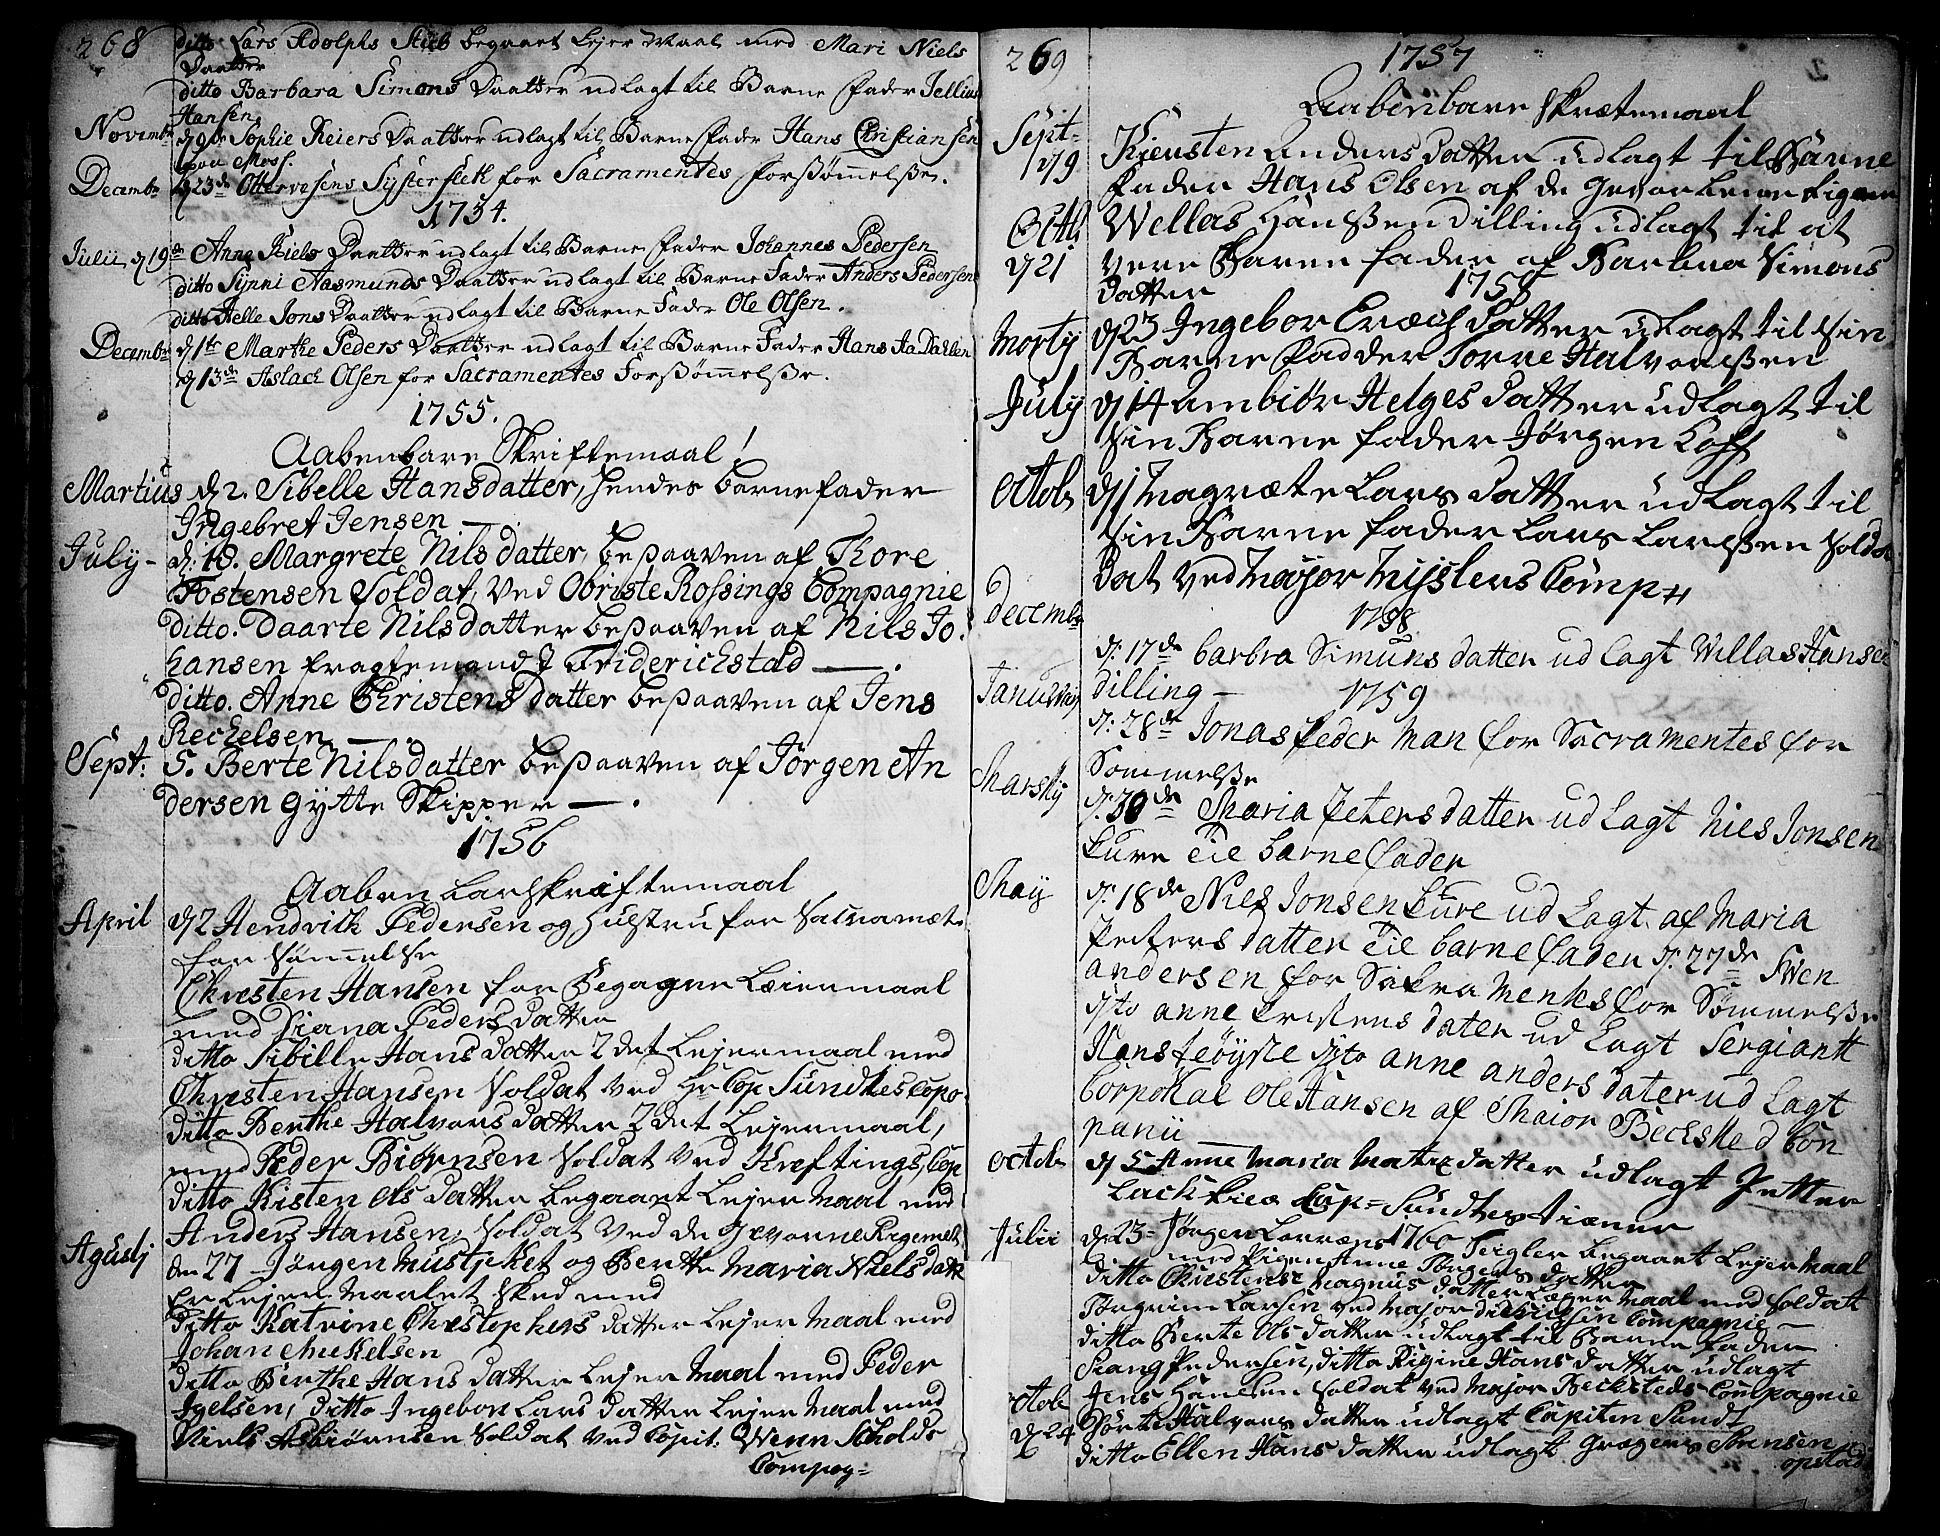 268
ditto Lars Adolphs Stub begaaet Lejer Maal med Mari Niels
Daatter
ditto Barbara Simons Daatter udlagt til Barne Fader Jellius
Hansen
Novembr d 9de Sophie Reiers Daatter udlagt til Barne Fader Hans Christiansen
paa Moss.
Decembr d 23de Ottervesens Systerflek for Sacramentes Forsømmelse.
1754.
Julii d 19de Anne Niels Daatter udlagt til Barne Fader Johannes Pedersen
ditto Synni Aasmunds Daatter udlagt til Barne Fader Anders Pedersen
ditto Helle Jons Daatter udlagt til Barne Fader Ole Olsen.
Decembr d 1te Marthe Peders Daatter udlagt til Barne Fader Hans Aa Dahlen
d 13de Aslach Olsen for Sacramentes Forsømmelse.
1755.
Aabenbare Skriftemaal!
Martius d. 2. Sibelle Hansdatter, hendes barnefader
Ingebret Jensen —
July - d. 18. Margrete Nilsdatter besaaven af Thore
Tostensen Soldat, ved Obriste Rossings Compagnie
ditto. Daarte Nilsdatter besaaven af Nils Jo:
hansen fragtemand I Friderichstad — .
ditto. Anne Christensdatter besaaven af Jens
Rechelsen — .
Sept: 5. Berte Nilsdatter besaaven af Jørgen An
dersen gytte Skipper — .
1756
Aabenbar Skriftemaal
April d 2 Hendrich Pedersen og Hustru for Sacramæte
for sømmelse
Christen Hansen for Begagen Leiermaal
med Siana Peders datter
ditto Sibille Hans datter 2 det Lejermaal med
Christen Hansen Soldat ved Hr Cop Sundtes Copo
ditto Berthe Halvors datter 2 det Lejermaal,
med Peder Biørnsen Soldat ved Kreftings Cop
ditto Kisten Ols datter begaaet Lejer Maal med
Anders Hansen, Soldat ved de Gevorne Regemet
Agustj den 27 Jørgen Mustjeket og Berthe Maria Niels datt
er Lejer Maalet sked med
ditto Katrine Christophers datter Lejer Maal med
Johan Mickelsen
ditto Berthe Hans datter Lejer Maal med Peder
Iyelsen, ditto Ingebor Lars datter Lejer Maal med
Niels Asbiørnsen Soldat ved Copit: Wenn Scholds
Compag=
269
1757
Aabenbare skrætemaal
Sept-
d 9 Kiersten Anders datter udlagt til Barne
fader Hans Olsen af de Gevorbene Rigem
Octb Wellas Hanssen dilling udlagt til at
d 21 vere Barne fader af Barbra Simons
datter 1758
Mortij d 23 Ingebor Erich datter udlagt til sin
Barne fadder Torre Halvorssen
July d 14 Ambiør Helges datter udlagt til
sin Barne fader Jørgen Loff
octob d 1 Magræte Lars datter udlagt til
sin Barne fader Lars Larssen Sold
dat ved Major Nijslers Comp
1758
Decembr d. 17de barbra Simuns datter ud lagt Willas Hansen
dilling — 1759
Januvary d. 28de Jonas feder man for Sacramentes for
Sømmelsse
Marsty d. 30de Maria Peters datter ud Lagt Nies Jonsen
Lure til barne fader
May d. 18de Nies Jonsen Lure ud Lagt af Maria
Peters datter til barne fader d. 27de Swen
andersen for Sakra Menks for Sømmelse
dito anne Cristens dater ud Lagt Sergiantt
Hans fløyste dito anne anders dater ud Lagt
Corpokal Ole Hansen af Maior Becksted Con
panii —
octob d 5 Anne Maria Matiz datter udlagt Petter
Lack Cap= Sundtes tiener
Julii d 23- Jørgen Lorrens 1760 Teigler begaaet Lejer Maal
med Pigen Anne Jørgens datter
ditto Christense Magnus datter Læyer Maal med Soldat
Torgrim Larsen ved Major diderichsen Compagnie —
ditto Berte Ols datter udlagt til Barne fader
Siang Pedersen, ditto Rigine Hans datter udlagt
Jens Hansen Soldat ved Major Becksteds Compagnie
octob
d 24 Dorte Halvors datter udlagt Capiten Sundt
ditto Ellen Hans datter udlagt Gregers Sørensen
opstad